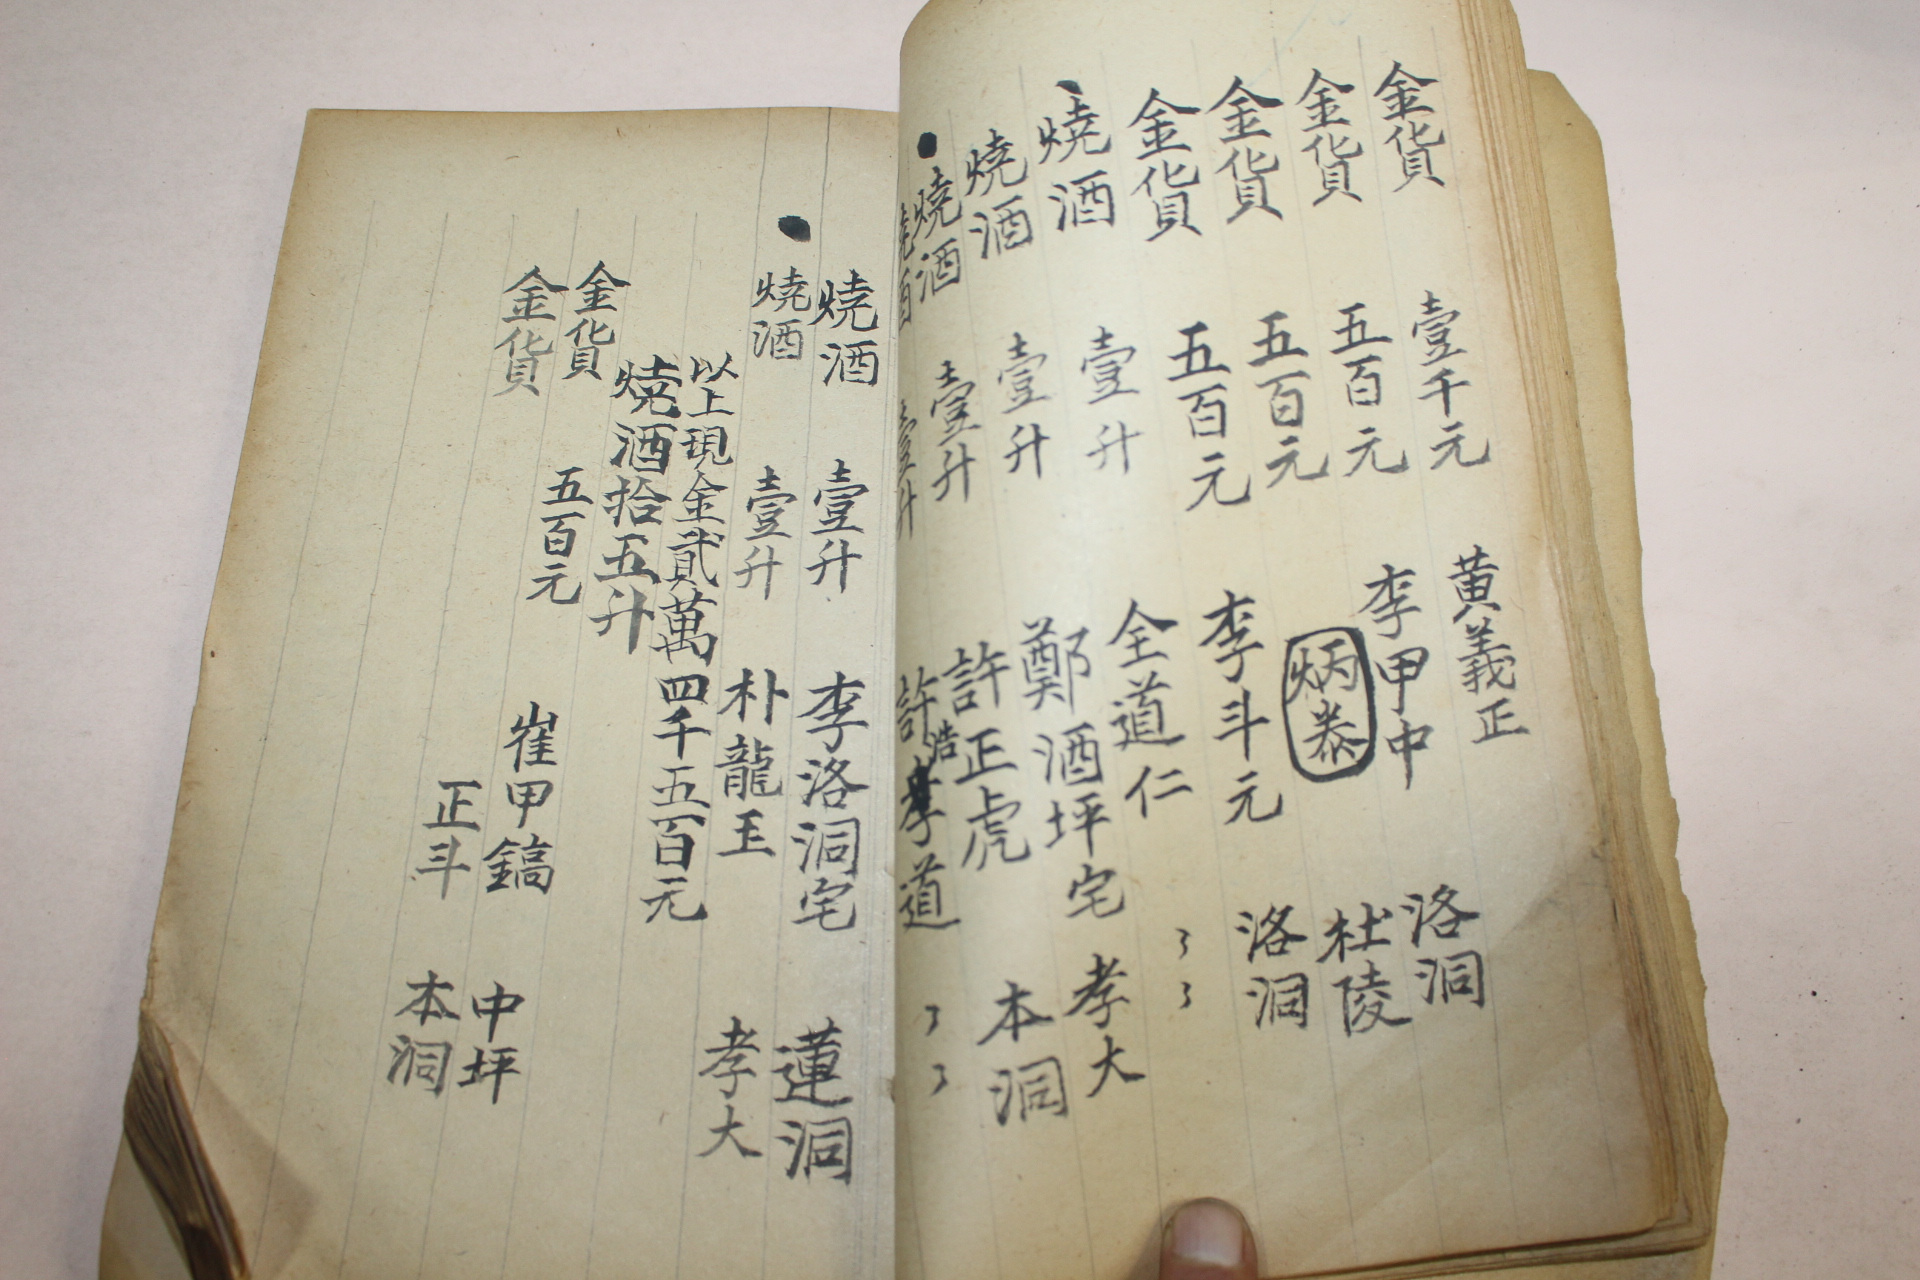 金貨 壹千元 黄義正 洛洞
金貨 五百元 李甲中 杜陵
金貨 五百元 炳泰 洛洞
金貨 五百元 李斗元 〃〃
燒酒 壹升 全道仁 孝大
燒酒 壹升 鄭酒坪宅 本洞
燒酒 壹升 許正虎 〃〃
燒酒 壹升 許浩 孝道
燒酒 壹升 李洛洞宅 蓮洞
燒酒 壹升 朴龍玉 孝大
以上現金貳萬四千五百元
燒酒拾五斗
金貨 五百元 崔甲鎬 中坪
金貨 正斗 本洞